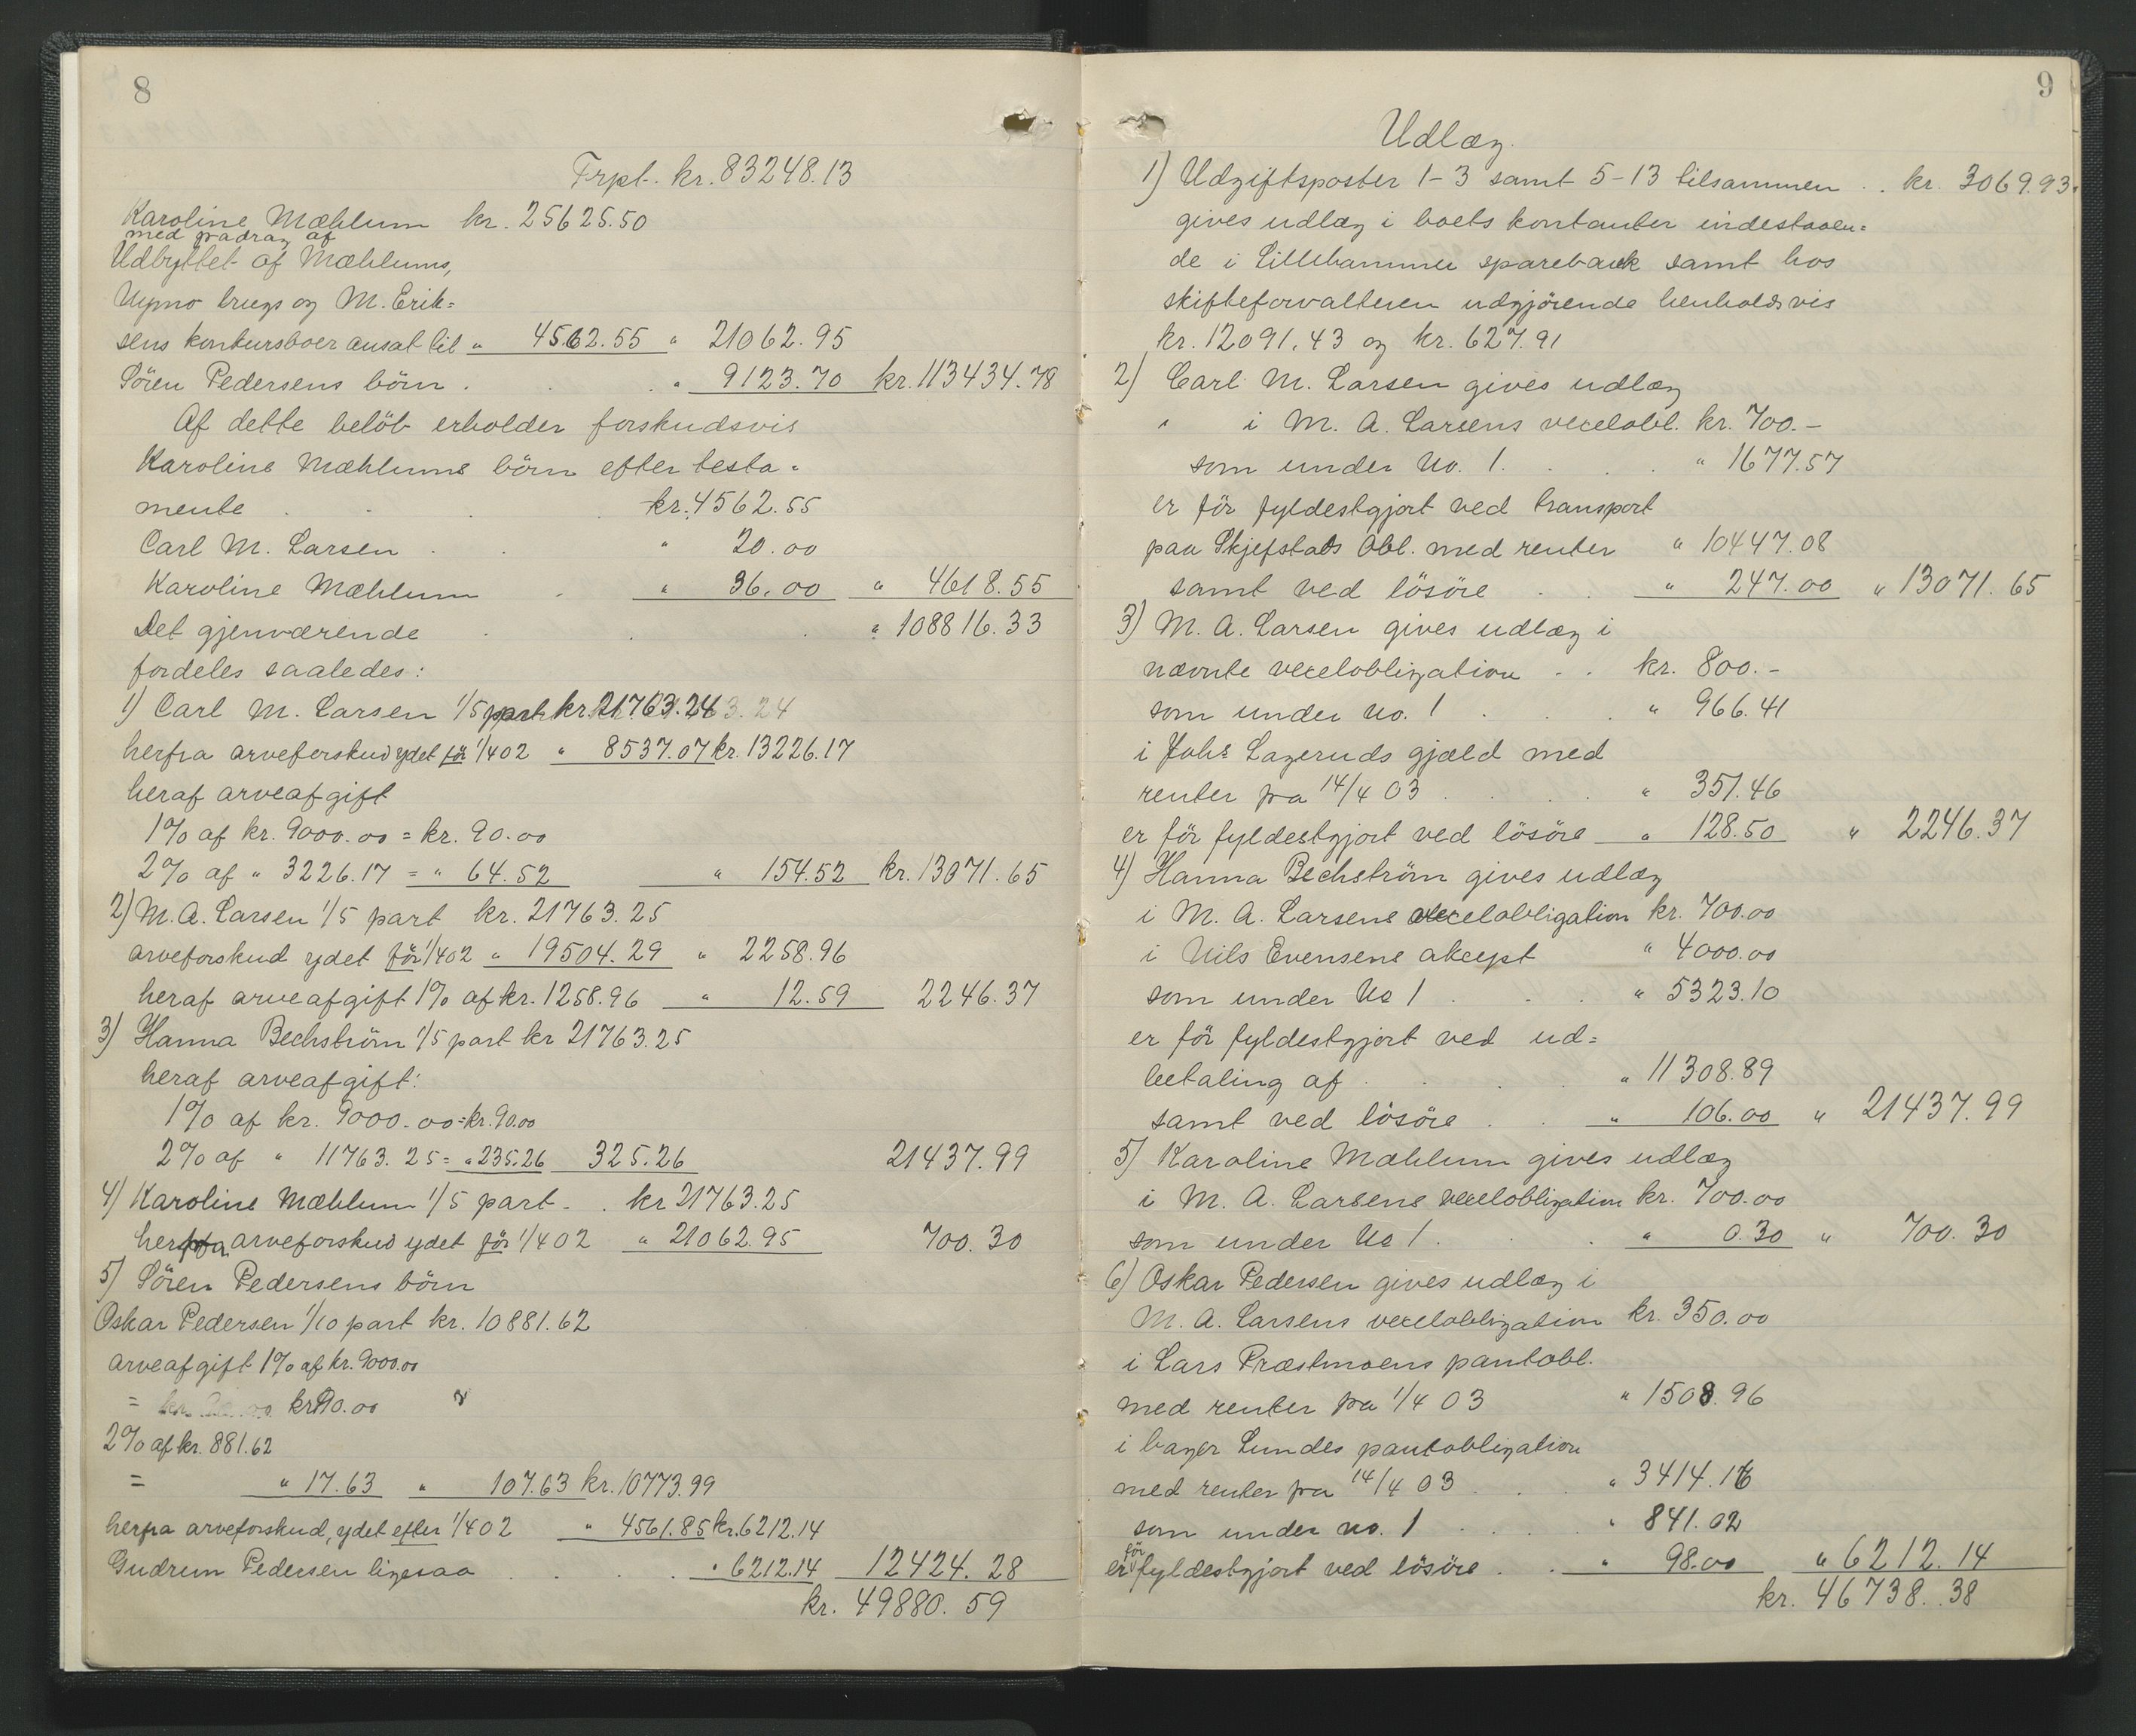 8
Frpt. kr. 83248.13
Karoline Mæhlum kr. 25625.50
med fradrag af
Udbyttet af Mæhlums,
Nymo brugs og M. Erik=
sens konkursboer ansat til " 4562.55 " 21062.95
Sören Pedersens börn . . . " 9123.70 kr. 113434.78
Af dette belöb erholder forskudsvis
Karoline Mæhlums börn efter testa=
mente . . . . kr. 4562.55
Carl M. Larsen . . " 20.00
Karoline Mæhlum . " 36.00 " 4618.55
Det gjenværende . . . " 108816.33
fordeles saaledes:
1) Carl M. Larsen 1/5 part kr. 21763.24
herfra arveforskud ydet för 1/4 02 " 8537.07 kr. 13226.17
heraf arveafgift
1% af kr. 9000.00 = kr. 90.00
2% af " 3226.17 = " 64.52 " 154.52 kr. 13071.65
2) M. A. Larsen 1/5 part kr. 21763.25
arveforskud ydet för 1/4 02 " 19504.29 " 2258.96
heraf arveafgift 1% af kr. 1258.96 " 12.59 2246.37
3) Hanna Bechström 1/5 part kr 21763.25
heraf arveafgift:
1% af kr. 9000.00 = kr. 90.00
2% af " 11763.25 = " 235.26 325.26 21437.99
4) Karoline Mæhlum 1/5 part . . kr 21763.25
herfra arveforskud ydet för 1/4 02 " 21062.95 700.30
5) Sören Pedersens börn
Oskar Pedersen 1/10 part kr. 10881.62
arveafgift 1% af kr. 9000.00
= kr. 90.00
2% af kr. 881.62
= " 17.63 " 107.63 kr. 10773.99
herfra arveforskud, ydet efter 1/4 02 " 4561.85 kr. 6212.14
Gudrun Pedersen ligesaa . . . . " 6212.14 12424.28
kr. 49880.59
9
Udlæg.
1) Udgiftsposter 1-3 samt 5-13 tilsammen . . kr. 3069.93.
gives udlæg i boets kontanter indestaaen=
de i Lillehammer sparebank samt hos
skifteforvalteren udgjörende henholdsvis
kr. 12091.43 og kr. 627.91
2) Carl M. Larsen gives udlæg
" i M. A. Larsens vexelobl. kr. 700.-
som under No. 1. . . . " 1677.57
er för fyldestgjort ved transport
paa Skjefstads Obl. med renter " 10447.08
samt ved lösöre . . " 247.00 " 13071.65
3) M. A. Larsen gives udlæg i
nævnte vexelobligation . . kr. 800.-
som under no. 1 . . . " 966.41
i Johs Lageruds gjæld med
renter fra 14/4 03 . . . . " 351.46
er för fyldestgjort ved lösöre " 128.50 " 2246.37
4) Hanna Bechström gives udlæg
i M. A. Larsens vexelobligation kr. 700.00
i Nils Evensens aksept " 4000.00
som under No 1 . . . " 5323.10
er för fyldestgjort ved ud=
betaling af . . . . " 11308.89
samt ved lösöre . . " 106.00 " 21437.99
5) Karoline Mæhlum gives udlæg
i M. A. Larsens vexelobligation kr. 700.00
som under No 1 . . . " 0.30 " 700.30
6) Oskar Pedersen gives udlæg i
M. A. Larsens vexelobligation kr. 350.00
i Lars Præstmoens pantobl.
med renter fra 1/4 03 " 1508.96
i bager Lundes pantobligation
med renter fra 14/4 03 . . . " 3414.16
som under no. 1 . . . . " 841.02
er för fyldestgjort ved lösöre . . " 98.00 " 6212.14
kr. 46738.38